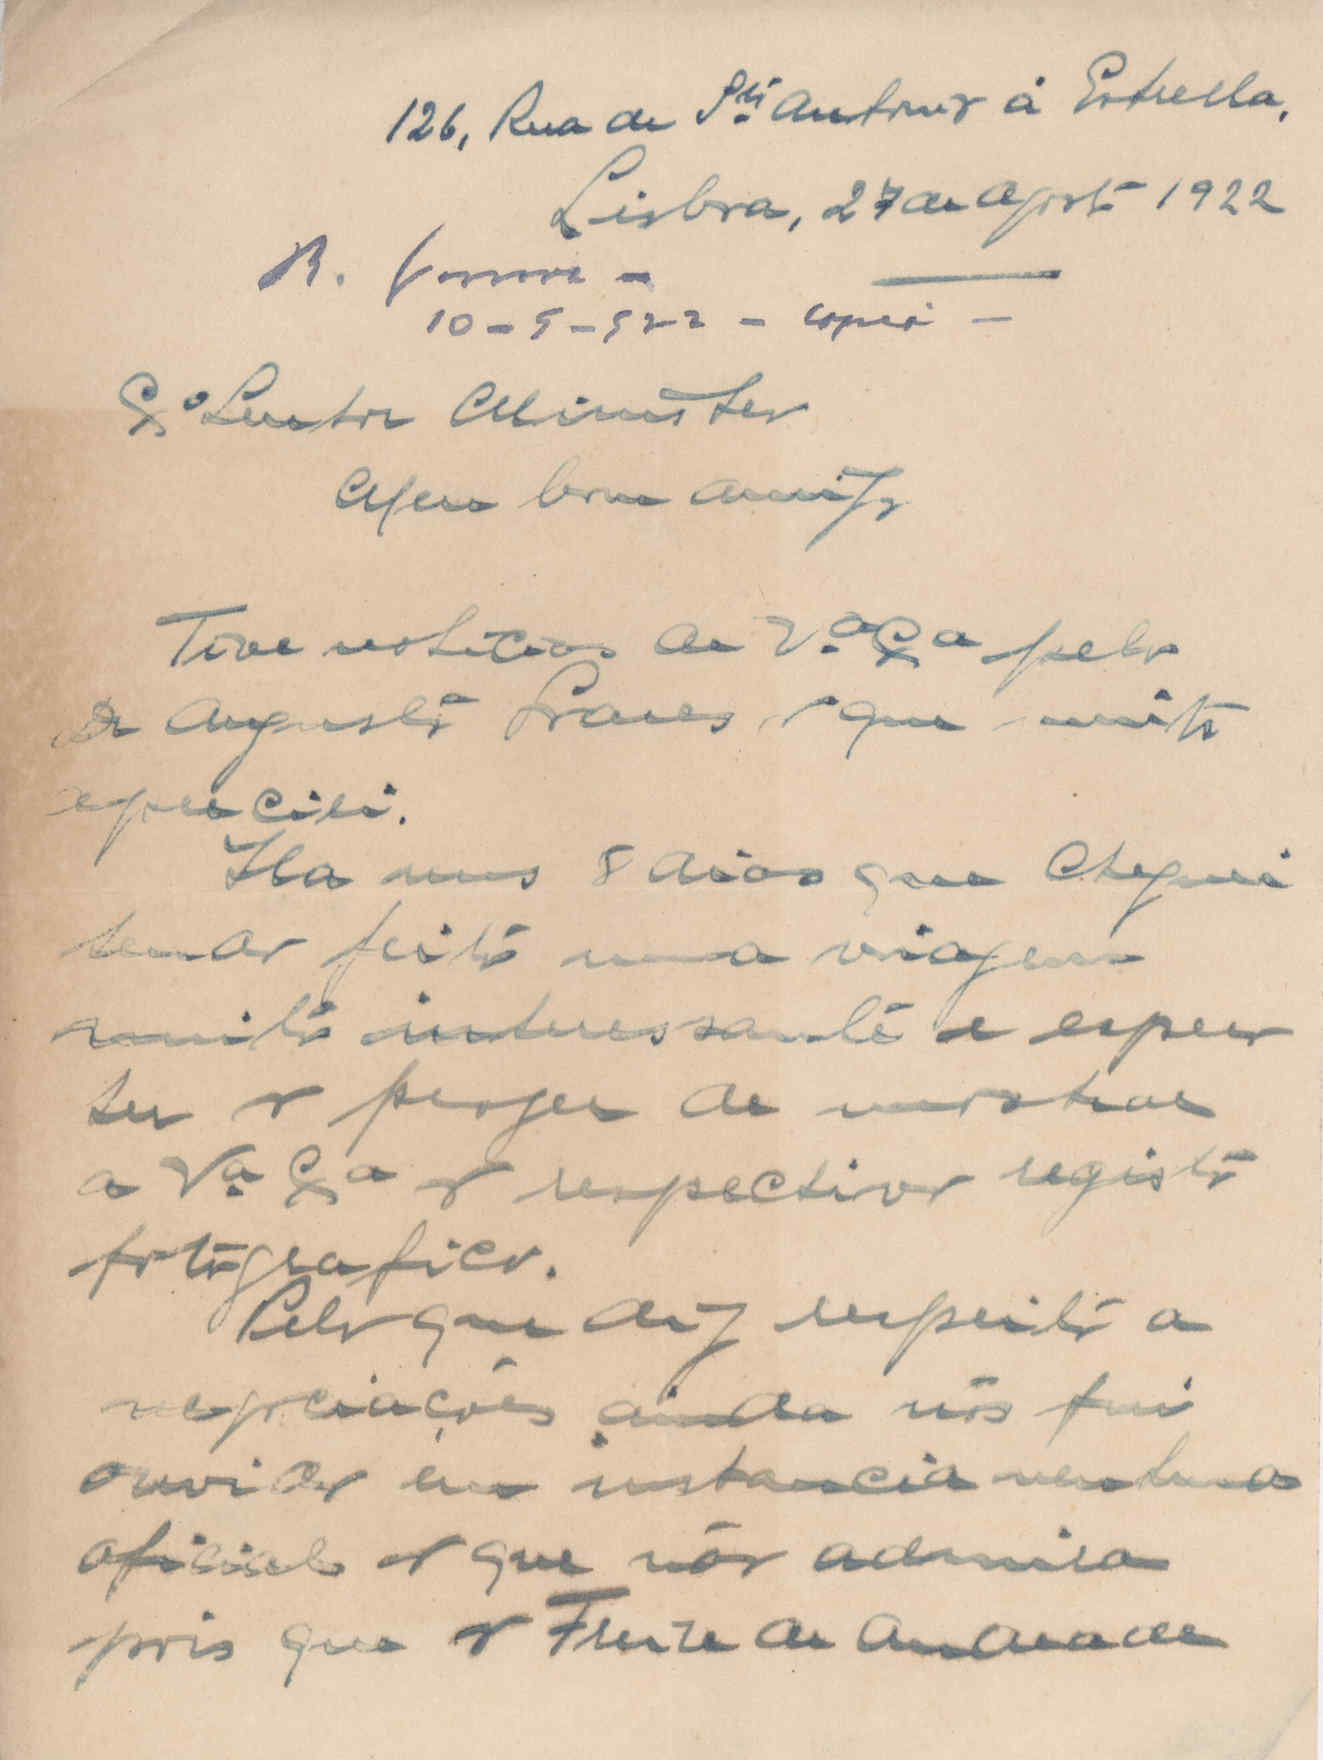 126, Rua de Stº Antonio á Estrella,
Lisboa, 27 de Agosto 1922
R.
10-9-922 - copia -
Exº Senhor Ministro
Meu bom amigo
Tive noticias de Vª Exª pelo
Dr Augusto Soares o que muito
apreciei.
Ha uns 8 dias que cheguei
tendo feito uma viagem
muito interessante e espero
ter o prazer de mostrar
a Vª Exª o respectivo registo
fotografico.
Pelo que diz respeito a
negociações ainda não fui
ouvido em instancia nenhuma
oficial o que não admira
pois que o Freire de Andrade